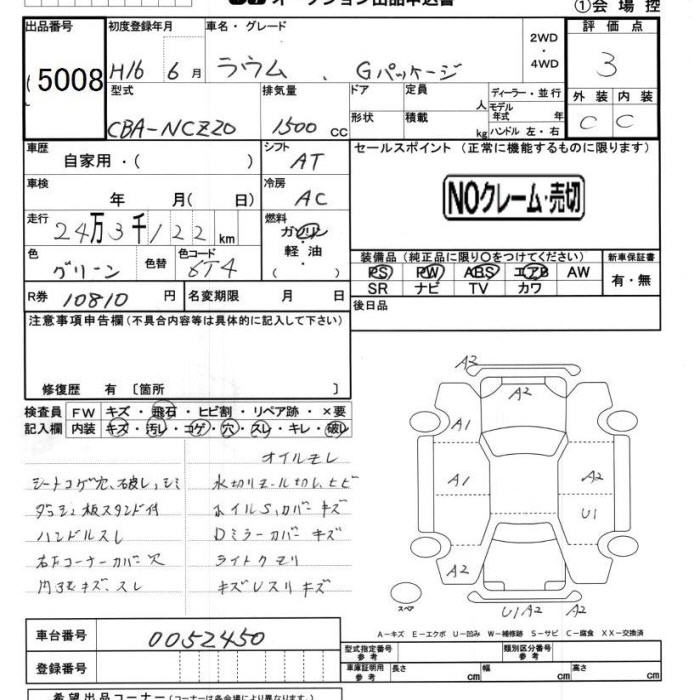 オークション出品申込書
①会場控
出品番号
5008
初度登録年月
H16 6月
車名・グレード
ラウム Gパッケージ
2WD・4WD
評価点
3
型式
CBA-NCZ20
排気量
1500 cc
ドア
形状
定員 人
積載 kg
ディーラー・並行
モデル年式 年
ハンドル 左・右
外装 内装
C C
車歴
自家用・( )
シフト
AT
セールスポイント (正常に機能するものに限ります)
NOクレーム・売切
車検
年 月( 日)
冷房
AC
走行
24万3千122 km
燃料
ガソリン
軽油
( ・ )
色
グリーン
色替
色コード
6T4
装備品 (純正品に限り○をつけてください)
PS PW ABS エアB AW
SR ナビ TV カワ
新車保証書
有・無
R券 10810 円
名変期限 月 日
後日品
注意事項申告欄 (不具合内容等は具体的に記入して下さい)
修復歴 有 〔箇所 〕
検査員記入欄
FW キズ・飛石・ヒビ割・リペア跡・×要
内装 キズ・汚レ・コゲ・穴・スレ・キレ・破レ
オイルモレ
シートコゲ穴、破レ、シミ
水切りモール切レ、ヒビ
ダッシュ板スタンド付
ホイルS,カバーキズ
ハンドルスレ
Dミラーカバーキズ
右下コーナーカバー穴
ライトクモリ
内張キズ、スレ
キズUスリキズ
A2
A2
A1
A1
A2
U1
A2
スペア
U1A2 A2
A－キズ E－エクボ U－凹み W－補修跡 S－サビ C－腐食 XX－交換済
車台番号
0052450
登録番号
型式指定番号 参考
類別区分番号 参考
車庫証明用 参考
長さ cm
幅 cm
高さ cm
希望出品コーナー (コーナーは各会場により異なります。)